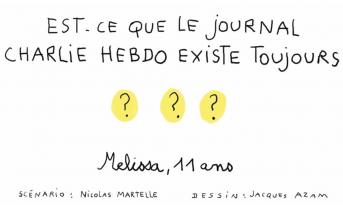 EST-CE QUE LE JOURNAL
CHARLIE HEBDO EXISTE TOUJOURS
? ? ?
Melissa, 11 ans
SCÉNARIO : NICOLAS MARTELLE DESSIN : JACQUES AZAM